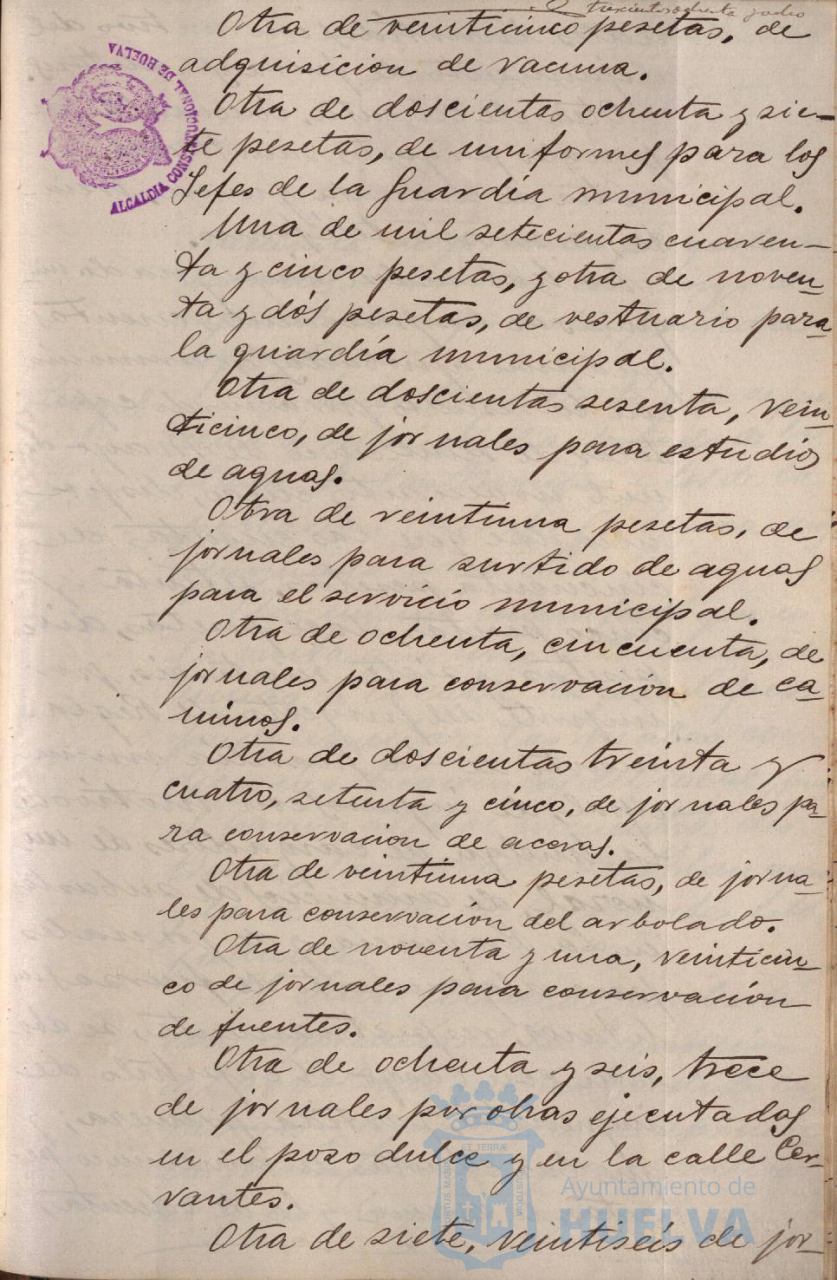 trescientos ochenta y ocho
Otra de veinticinco pesetas, de
adquisicion de vacuna.
Otra de doscientas ochenta y sie-
te pesetas, de uniformes para los
Jefes de la Guardia municipal.
Una de mil setecientas cuaren-
ta y cinco pesetas, y otra de noven-
ta y dós pesetas, de vestuario para
la guardia municipal.
Otra de doscientas sesenta, vein-
ticinco, de jornales para estudios
de aguas.
Otra de veintiuna pesetas, de
jornales para surtido de aguas
para el servicio municipal.
Otra de ochenta, cincuenta, de
jornales para conservacion de ca-
minos.
Otra de doscientas treinta y
cuatro, setenta y cinco, de jornales pa-
ra conservacion de aceras.
Otra de veintiuna pesetas, de jorna-
les para conservacion del arbolado.
Otra de noventa y una, veinticin-
co de jornales para conservación
de fuentes.
Otra de ochenta y seis, trece
de jornales por obras ejecutadas
en el pozo dulce y en la calle Cer-
vantes.
Otra de siete, veintiseis de jor-
ALCALDIA CONSTITUCIONAL DE HUELVA
Ayuntamiento de
HUELVA